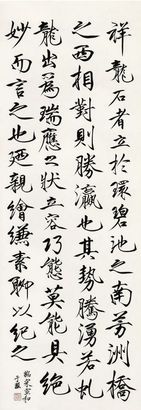 祥龍石者立於環碧池之南芳洲橋
之西相對則勝瀛也其勢騰湧若虬
龍出為瑞應之狀立容巧態莫能具絕
妙而言之也廼親繪縑素聊以紀之